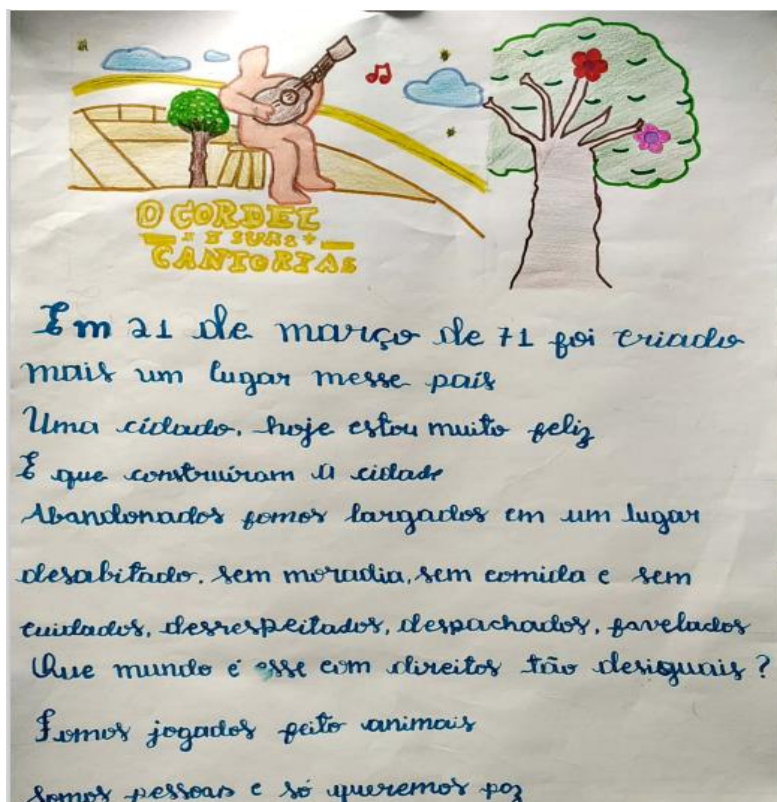 O CORDEL
E SUAS
CANTORIAS
Em 21 de março de 71 foi criado
mais um lugar nesse país
Uma cidade, hoje estou muito feliz
E que construiram a cidade
Abandonados fomos largados em um lugar
desabitado. sem moradia, sem comida e sem
cuidados, desrespeitados, despachados, favelados
Que mundo é esse com direitos tão desiguais?
Fomos jogados feito animais
Somos pessoas e só queremos paz